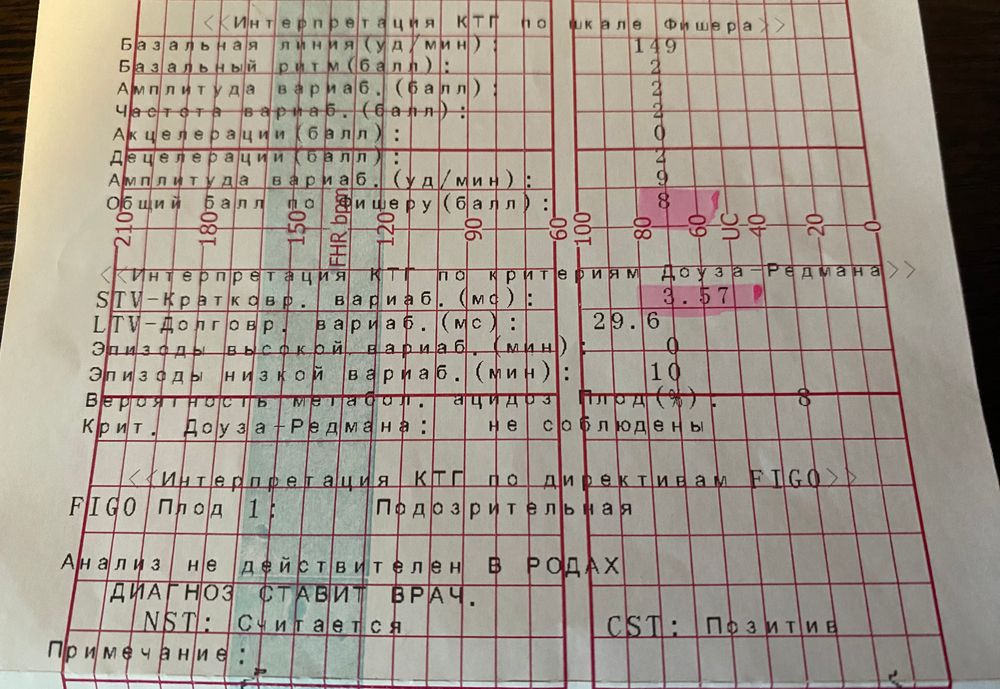 <<Интерпретация КТГ по шкале Фишера>>
Базальная линия(уд/мин): 149
Базальный ритм(балл): 2
Амплитуда вариаб.(балл): 2
Частота вариаб.(балл): 2
Акцелерации(балл): 0
Децелерации(балл): 2
Амплитуда вариаб.(уд/мин): 9
Общий балл по Фишеру(балл): 8
210 180 150 FHR bpm 120 90 60 100 80 60 UC 40 20 0
<<Интерпретация КТГ по критериям Доуза-Редмана>>
STV-Кратковр. вариаб.(мс): 3.57
LTV-Долговр. вариаб.(мс): 29.6
Эпизоды высокой вариаб.(мин): 0
Эпизоды низкой вариаб.(мин): 10
Вероятность метабол. ацидоз Плод(%): 8
Крит. Доуза-Редмана: не соблюдены
<<Интерпретация КТГ по директивам FIGO>>
FIGO Плод 1: Подозрительная
Анализ не действителен В РОДАХ
ДИАГНОЗ СТАВИТ ВРАЧ.
NST: Считается CST: Позитив
Примечание: